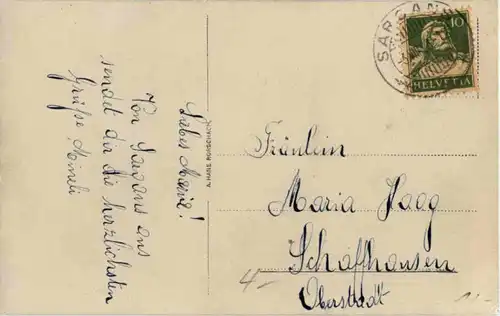 Liebe Marie!
Von Sargans aus
sendet dir die herzlichsten
Grüße Mineli
A. HASS, RORSCHACH.
SARGANS
10
HELVETIA
Fräulein
Maria Haag
Schaffhausen
Oberstadt
4.-